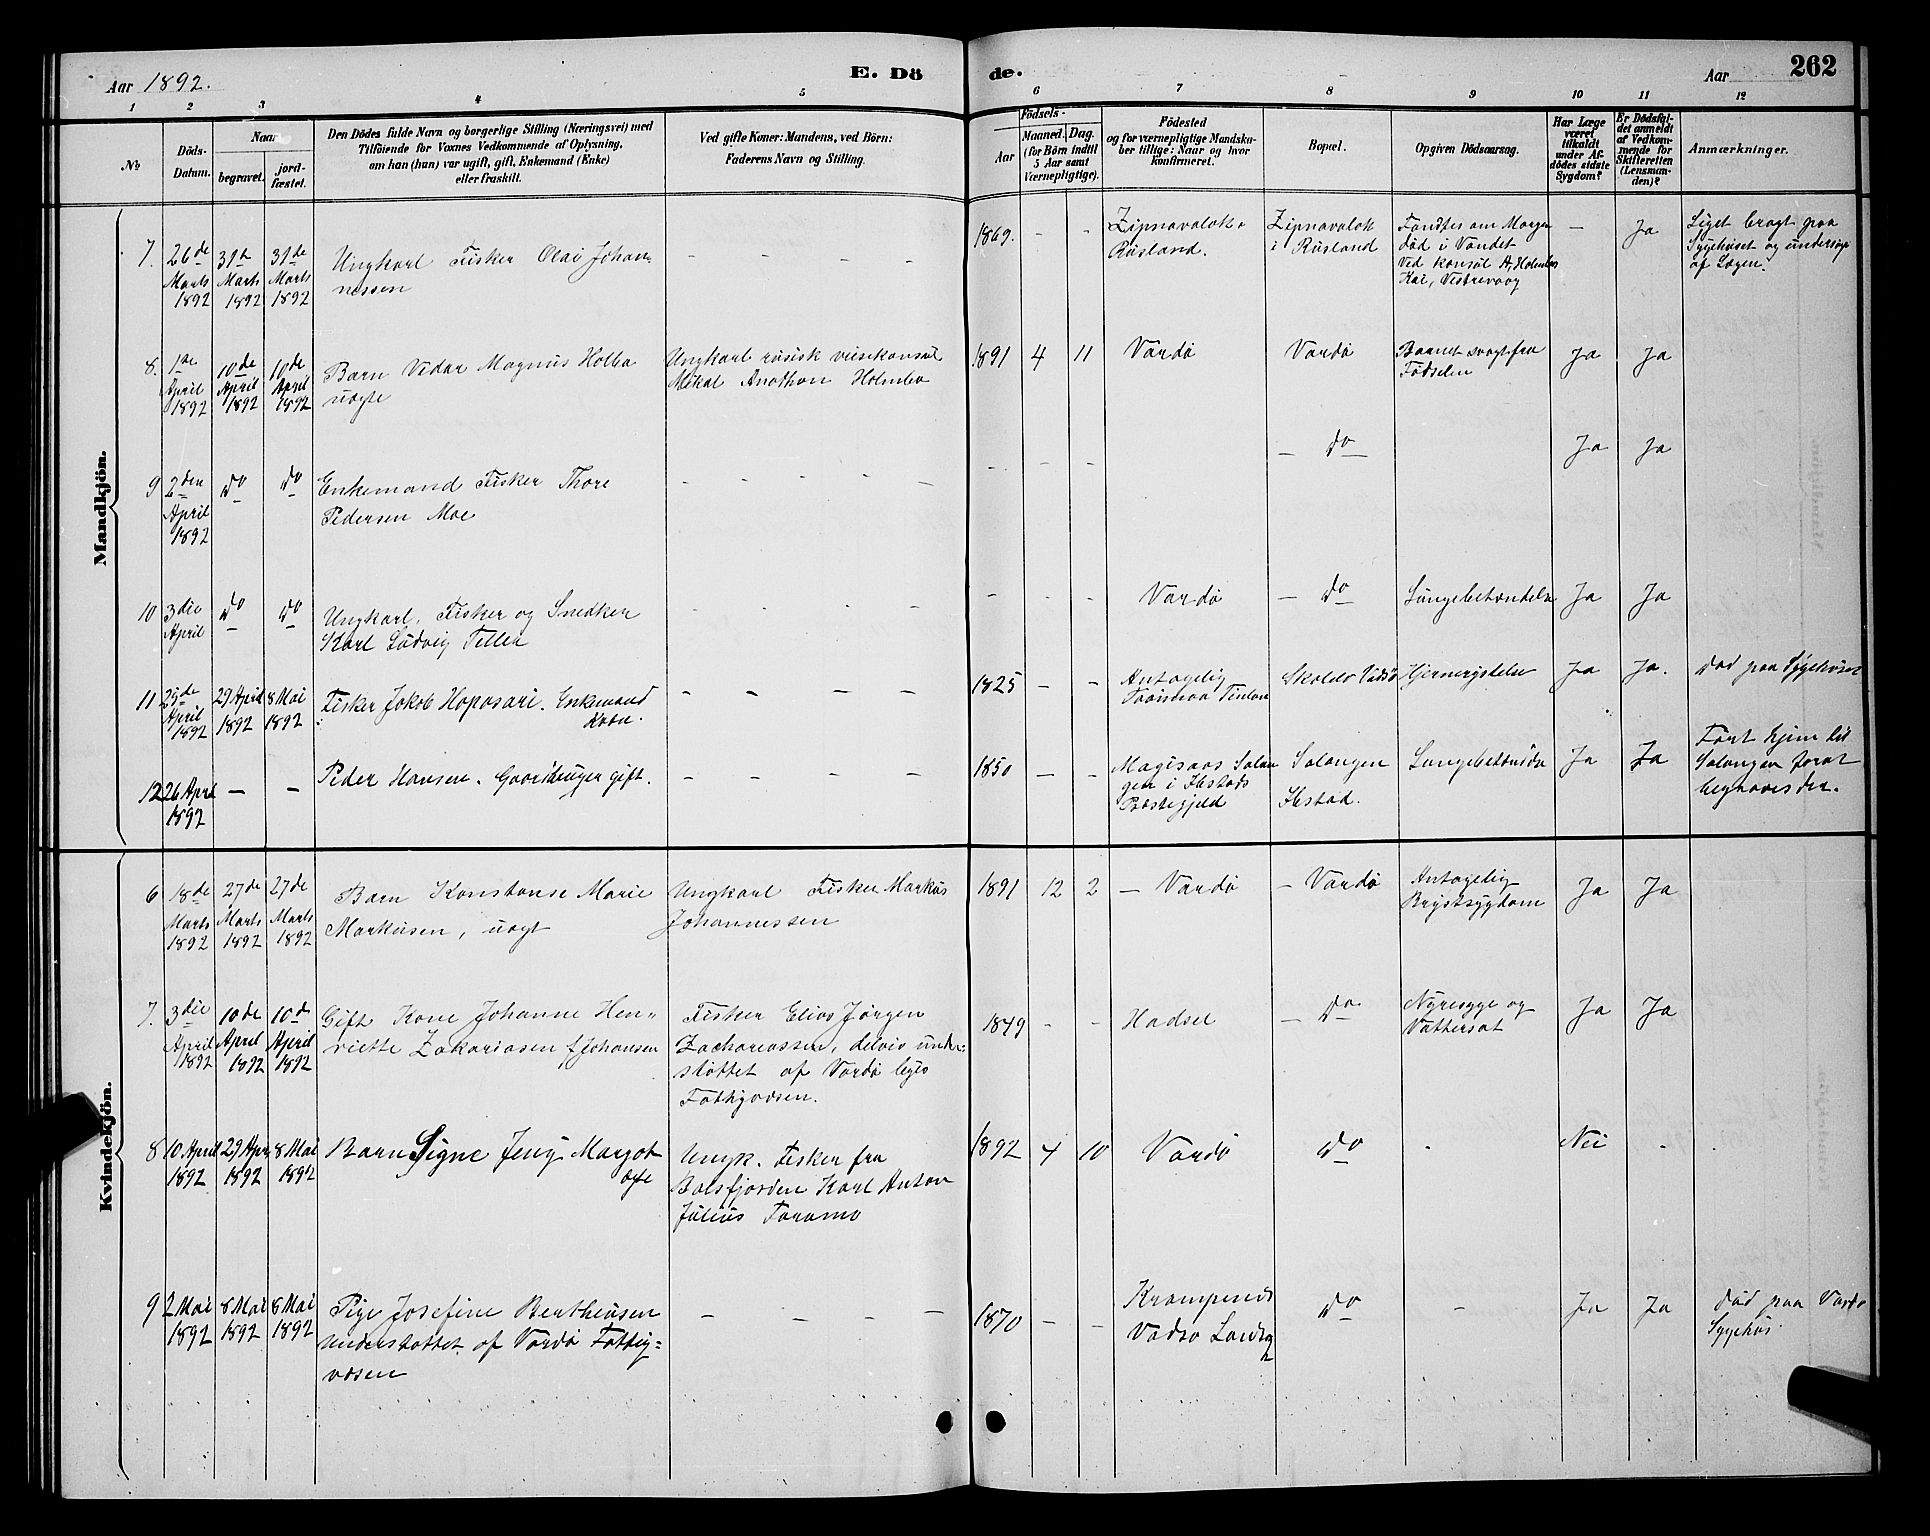 Aar 1892.
E. Dö
de.
Aar
262
1 2 3 4 5 6 7 8 9 10 11 12
No.
Döds-
Datum.
Naar
begravet.
jord-
fæstet.
Den Dödes fulde Navn og borgerlige Stilling (Næringsvei) med
Tilföiende for Voxnes Vedkommende af Oplysning,
om han (hun) var ugift, gift, Enkemand (Enke)
eller fraskilt.
Ved gifte Koner: Mandens, ved Börn:
Faderens Navn og Stilling.
Födsels-
Aar
Maaned. Dag.
(for Börn indtil
5 Aar samt
Værnepligtige).
Födested
og for værnepligtige Mandska-
ber tillige: Naar og hvor
konfirmeret.
Bopæl.
Opgiven Dödsaarsag.
Har Læge
været
tilkaldt
under Af-
dödes sidste
Sygdom?
Er Dödsfal-
det anmeldt
af Vedkom-
mende for
Skifteretten
(Lensman-
den)?
Anmærkninger.
Mandkjön.
7. 26de Marts 1892 31te Marts 1892 31te Marts 1892
Ungkarl Fisker Olai Johan-
nessen
- - - - -
1869. - -
Zipnavalok i
Rüsland.
Zipnavalok
i Rüsland
Fandtes om Morgen
död i Vandet
Ved Konsul A. Holmboe
Kai, Vestrevaag
- Ja
Liget bragt paa
Sygehuset og undersögt
af Lægen.
8. 1ste April 1892 10de April 1892 10de April 1892
Barn Vidar Magnus Holbo
uægte
Ungkarl rüsisk visekonsul
Mikal Holmbo
1891 4 11 Vardö Vardö
Barnet svagt fra
Födselen
Ja Ja
9 2den April 1892 do do
Enkemand Fisker Thore
Pedersen Moe
- - - - -
- - - - do - Ja Ja
10 3die April do do
Ungkarl, Fisker og Snedker
Karl Lüdvig Teller
- - - -
- - - Vardö - do - Lungebetændelse Ja Ja
11 25de April 1892 29 April 1892 8 Mai 1892
Fisker Jakob Hoposari. Enkemand
Kvæn.
- - - - -
1825 - -
Antagelig
Hjernerystelse Ja Ja. Död paa Sygehuset
12 26 April 1892 - -
Peder Hansen. Gaardbruger gift.
- - - - -
1850 - -
Magisaas Salan
gen i Ibestads
Præstegjeld
Salangen
Ibestad.
Lungebetændelse Ja Ja
Fört hjem til
Salangen forat
begraves der.
Kvindekjön.
6 18de Marts 1892 27de Marts 1892 27de Marts 1892
Barn Konstanse Marie
Markusen, uægt
Ungkarl Fisker Markus
Johannessen
1891 12 2 - Vardö - Vardö
Antagelig
Brystsygdom
Ja Ja
7. 3die April 1892 10de April 1892 10de April 1892
Gift Kone Johanne Hen-
riette Zakariasen f Johansen
Fisker Elias Jörgen
Zachariassen, delvis under-
stöttet af Vardö byes
Fattigvæsen.
1849 - - Hadsel - do
Nyresyge og
Vattersot
Ja Ja
8 10 April 1892 29 Apr 1892 8 Mai 1892
Barn Signe Jeny Margot
ægte
Ungk. Fisker fra
Balsfjorden Karl Anton
Julius
1892 4 10 Vardö do - Nei - .
9 2 Mai 1892 8 Mai 1892 8 Mai 1892
Pige Josefine Bertheusen
understöttet af Vardö Fattig-
væsen
- - - -
1870 - -
Vadsö
do - Ja Ja
död paa Vardö
Sygehus.